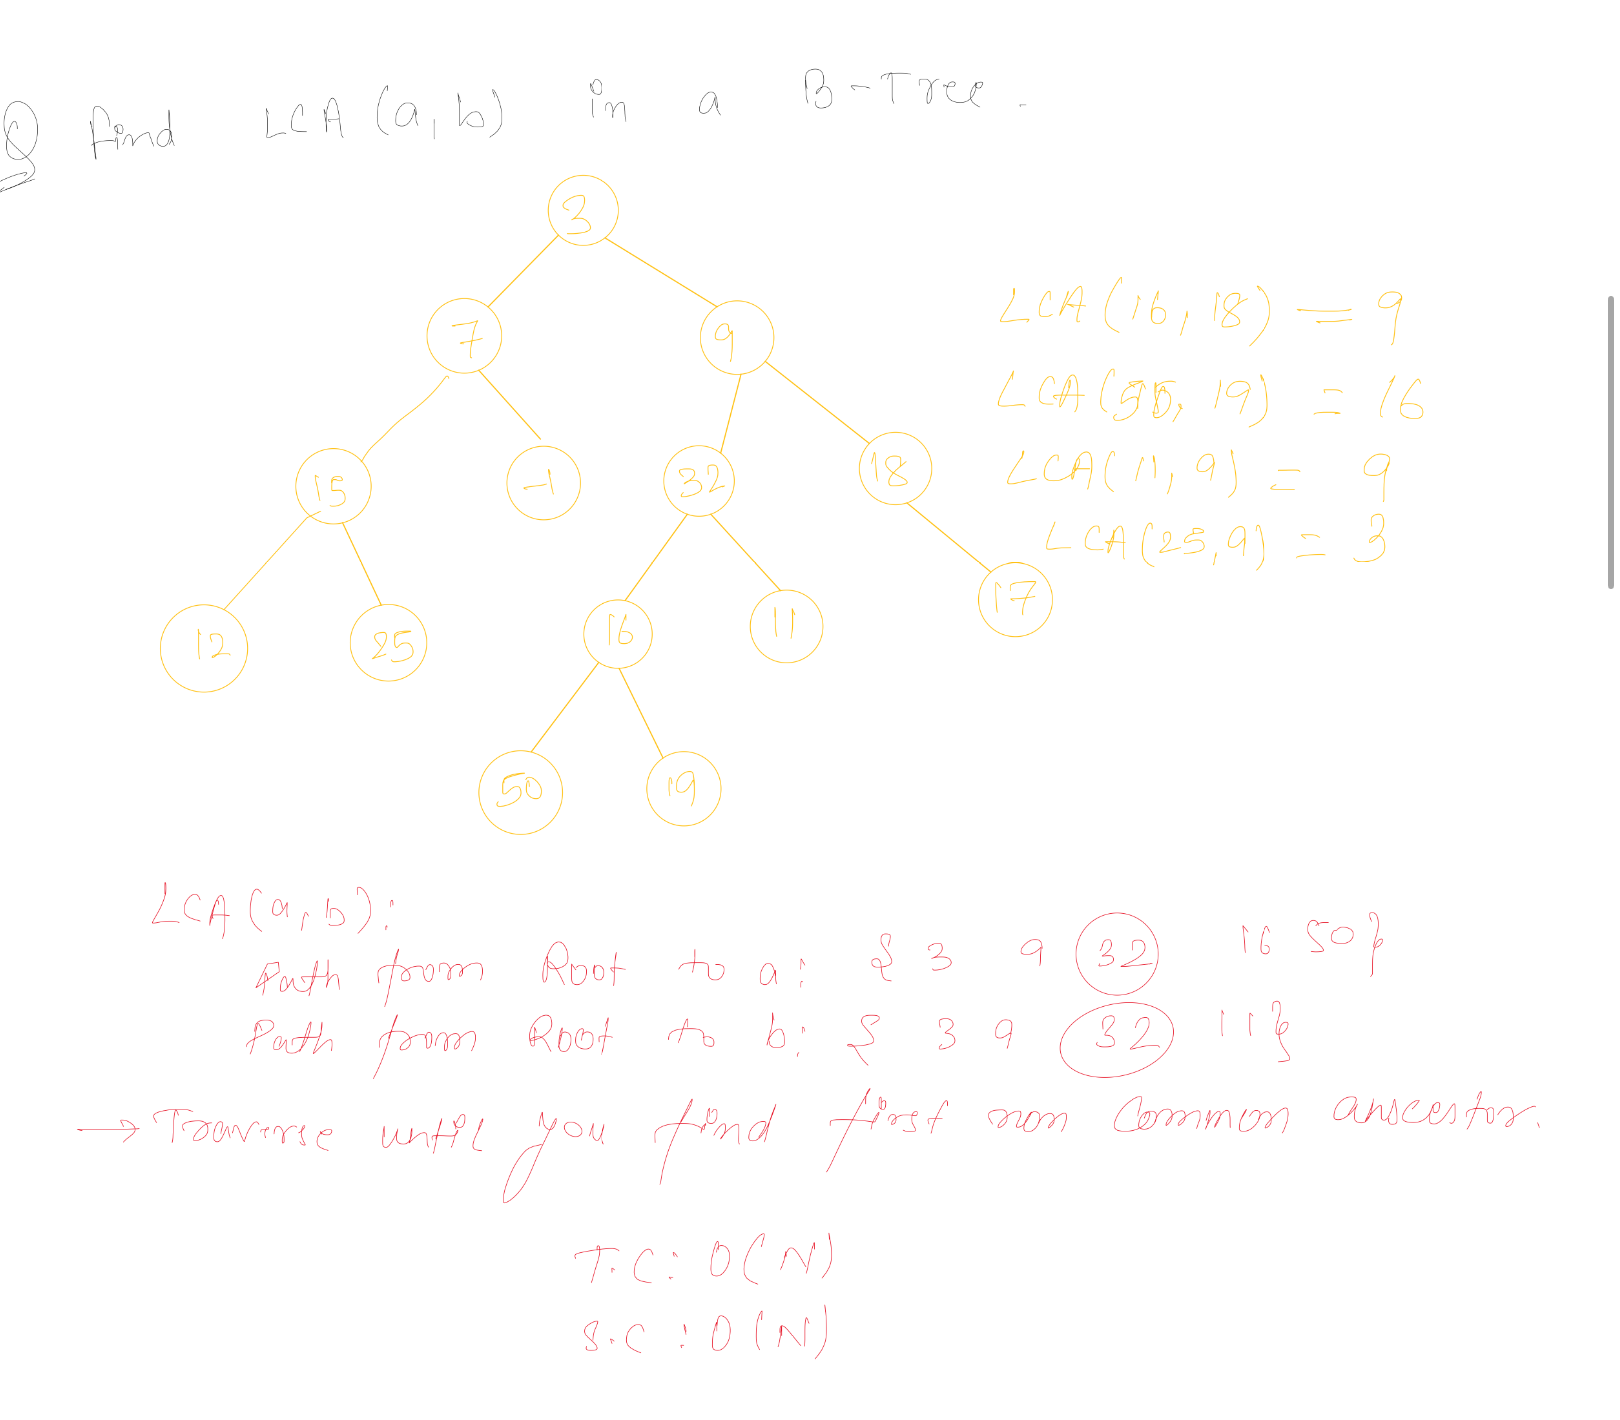 Q Find LCA (a, b) in a B-Tree.
3
7 9
15 -1 32 18
12 25 16 11 17
50 19
LCA (16, 18) = 9
LCA (50, 19) = 16
LCA (11, 9) = 9
LCA (25, 9) = 3
LCA (a, b):
Path from Root to a: { 3 9 32 16 50 }
Path from Root to b: { 3 9 32 11 }
→ Traverse until you find first non Common anscestor.
T.C: O(N)
S.C: O(N)